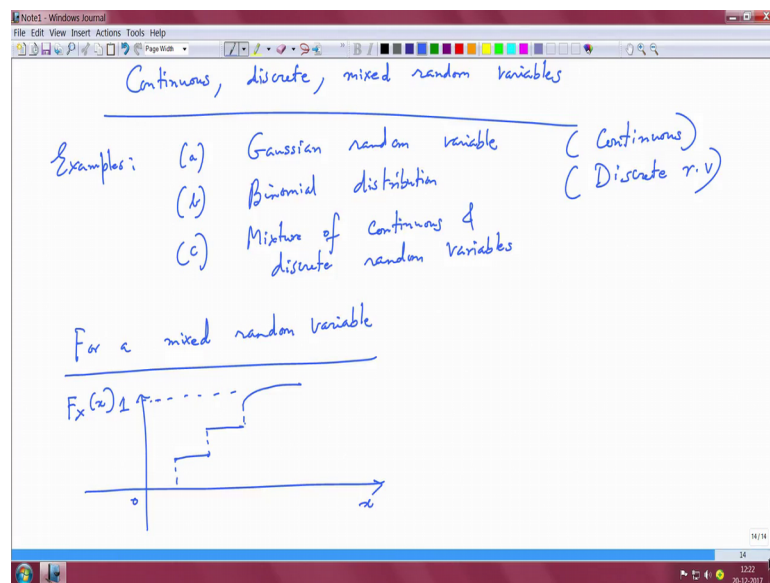 Note1 - Windows Journal
File Edit View Insert Actions Tools Help
Page Width
Continuous, discrete, mixed random variables
Examples: (a) Gaussian random variable (Continuous)
(b) Binomial distribution (Discrete r.v)
(c) Mixture of continuous &
discrete random variables
For a mixed random variable
F_X(x) 1
0 x
14/14
14
12:22
20-12-2017